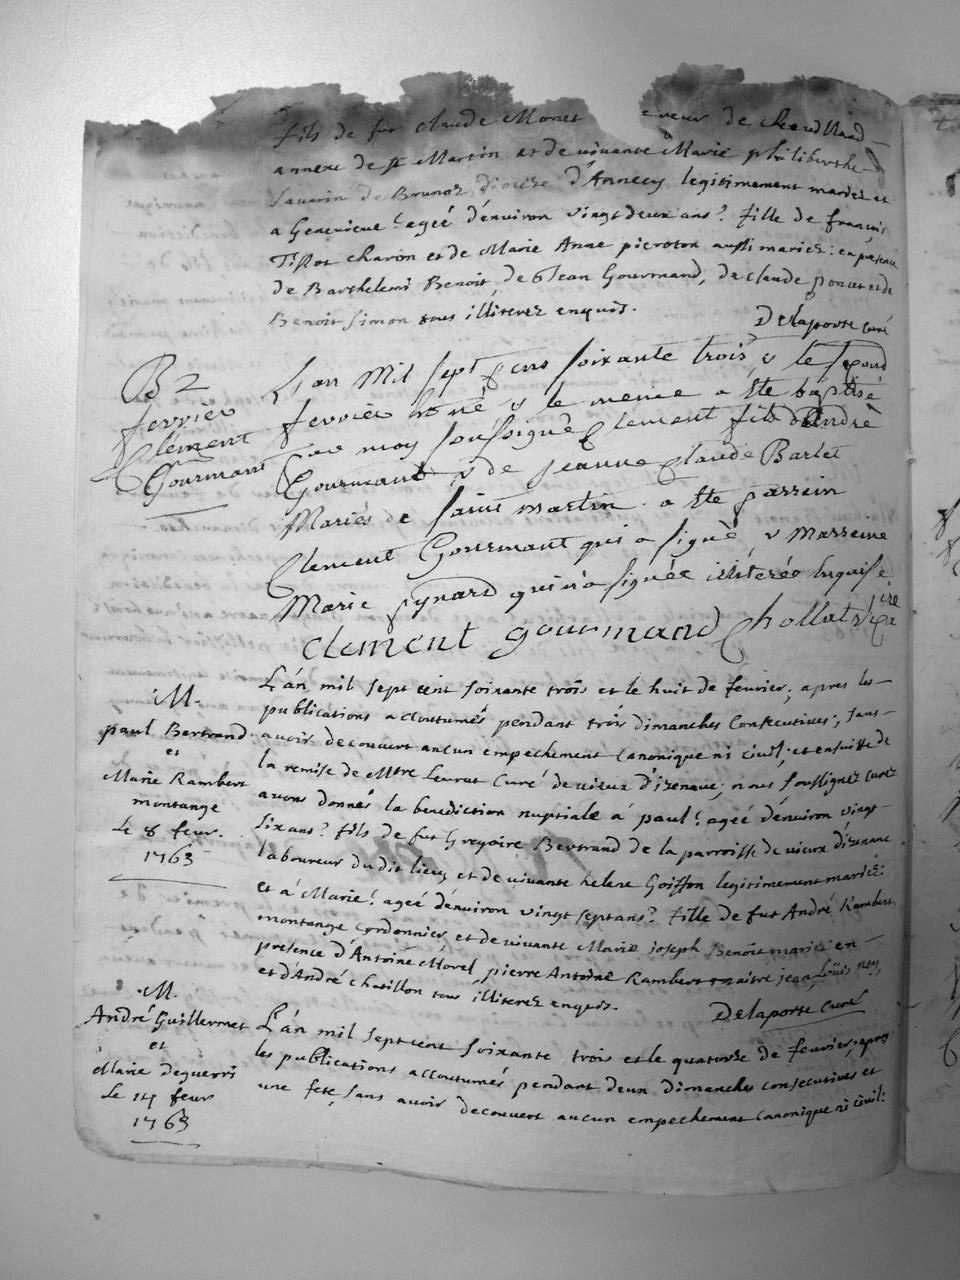 fils de fut claude Monet de chevillard
annexe de st Martin et de vivante Marie philiberthe
Sauarin de Brunod, diocese d'Annecy legitimement mariez et
a Genevieve: ageé d'énviron vingt deux ans? fille de françois
Tissot charon et de Marie Anne pierroton aussi mariez: en présence
de Barthelemi Benoit, de Jean Gourmand, de claude poncet et de
Benoit Simon tous illiterez enquis.
Delaporte curé
B 2
fevrier
Clément
Gourmant
L'an Mil sept cens soixante trois & le segond
fevrier est né & le meme a Ete baptisé
par moy soussigné Clement fils d'Andrè
Gourmant & de jeanne Claude Barlet
Mariés de saint martin. a Ete parrein
Clement Gourmant qui a signè & Marreine
Marie Pynard qui n'a signée illiterée Enquise
Clement gourmand Chollat vicre
M.
paul Bertrand
et
Marie Rambert
montange
Le 8 feur.
1763
L'án mil sept cent soixante trois et le huit de fevrier, apres les
publications accoutumés pendant trois dimanches consecutives, sans
avoir decouvert aucun empechement canonique ni civil; et ensuitte de
la remise de Mtre Levrat Curé de vieux d'izenave; nous soussignez curez
avons donnés la benediction nuptiale á paul: ageé dénviron vingt
six ans? fils de fut Gregoire Bertrand de la parroisse de vieux d'izenave
laboureur dudit lieu, et de vivante helene Goiffon legitimement mariéz:
et á Marie: ageé dénviron vingt sept ans? fille de fut André Rambert
montange Cordonnier, et de vivante Marie joseph Benoit mariéz en
presence d'Antoine Morel, pierre Antoine Rambert maitre jean Loüis ney
et d'André chatillon tous illiterez enquis.
Delaporte Curé
M.
André Guillermet
et
Marie deguerri
Le 14 feur
1763
L'án mil sept cent soixante trois et le quatorze de fevrier, apres
les publications accoutumés pendant deux dimanches consecutives et
une fete, sans avoir decouvert aucun empechement canonique ni civil: